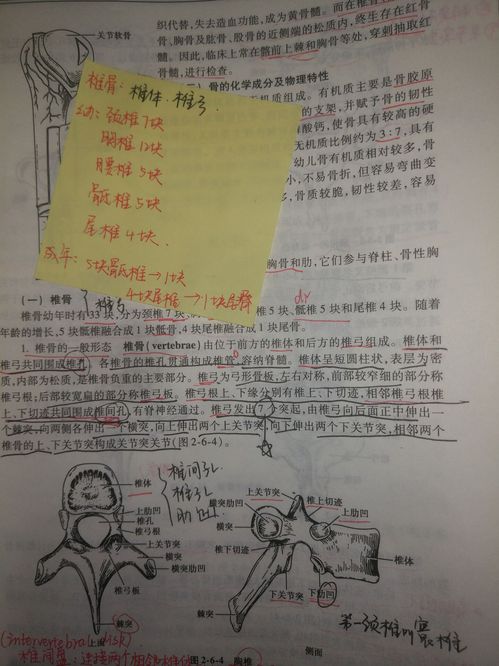 关节软骨
织代替,失去造血功能,成为黄骨髓。而在椎骨
骨、胸骨及肱骨、股骨的近侧端的松质内,终生存在红骨
髓。因此,临床上常在髂前上棘和胸骨等处,穿刺抽取红
骨髓,进行检查。
骨的化学成分及物理特性
机质组成。有机质主要是骨胶原
的支架,并赋予骨的韧性
酸钙,使骨具有较高的硬
无机质比例约为3:7,具有
幼儿骨有机质相对较多,骨
小,不易骨折,但容易弯曲变
多,骨质较脆,韧性较差,容易
椎骨:椎体.椎弓.
幼:颈椎7块
胸椎12块
腰椎5块
骶椎5块
尾椎4块.
成年:5块骶椎→1块
4块尾椎→1块尾骨
胸骨和肋,它们参与脊柱、骨性胸
(一) 椎骨
椎骨幼年时有33块,分为颈椎7块、
椎5块、骶椎5块和尾椎4块。随着
年龄的增长,5块骶椎融合成1块骶骨,4块尾椎融合成1块尾骨。
1. 椎骨的一般形态 椎骨(vertebrae)由位于前方的椎体和后方的椎弓组成。椎体和
椎弓共同围成椎孔。各椎骨的椎孔贯通构成椎管,容纳脊髓。椎体呈短圆柱状,表层为密
质,内部为松质,是椎骨负重的主要部分。椎弓为弓形骨板,左右对称,前部较窄细的部分称
椎弓根;后部较宽扁的部分称椎弓板。椎弓根上、下缘分别有椎上、下切迹,相邻椎弓根椎
上、下切迹共同围成椎间孔,有脊神经通过。椎弓发出7个突起,由椎弓向后面正中伸出一
个棘突,向两侧各伸出一个横突,向上伸出两个上关节突,向下伸出两个下关节突,相邻两个
椎骨的上、下关节突构成关节突关节(图2-6-4)。
椎间孔
椎弓孔
肋凹
椎体
上肋凹
椎孔
椎弓根
上关节突
横突
横突肋凹
椎弓板
棘突
上面
上关节突
椎上切迹
横突肋凹
上肋凹
横突
椎下切迹
椎体
下关节突
下肋凹
棘突
侧面
第一颈椎叫寰椎
(intervertebral disk)
椎间盘:连接两个相邻椎体
图2-6-4 胸椎